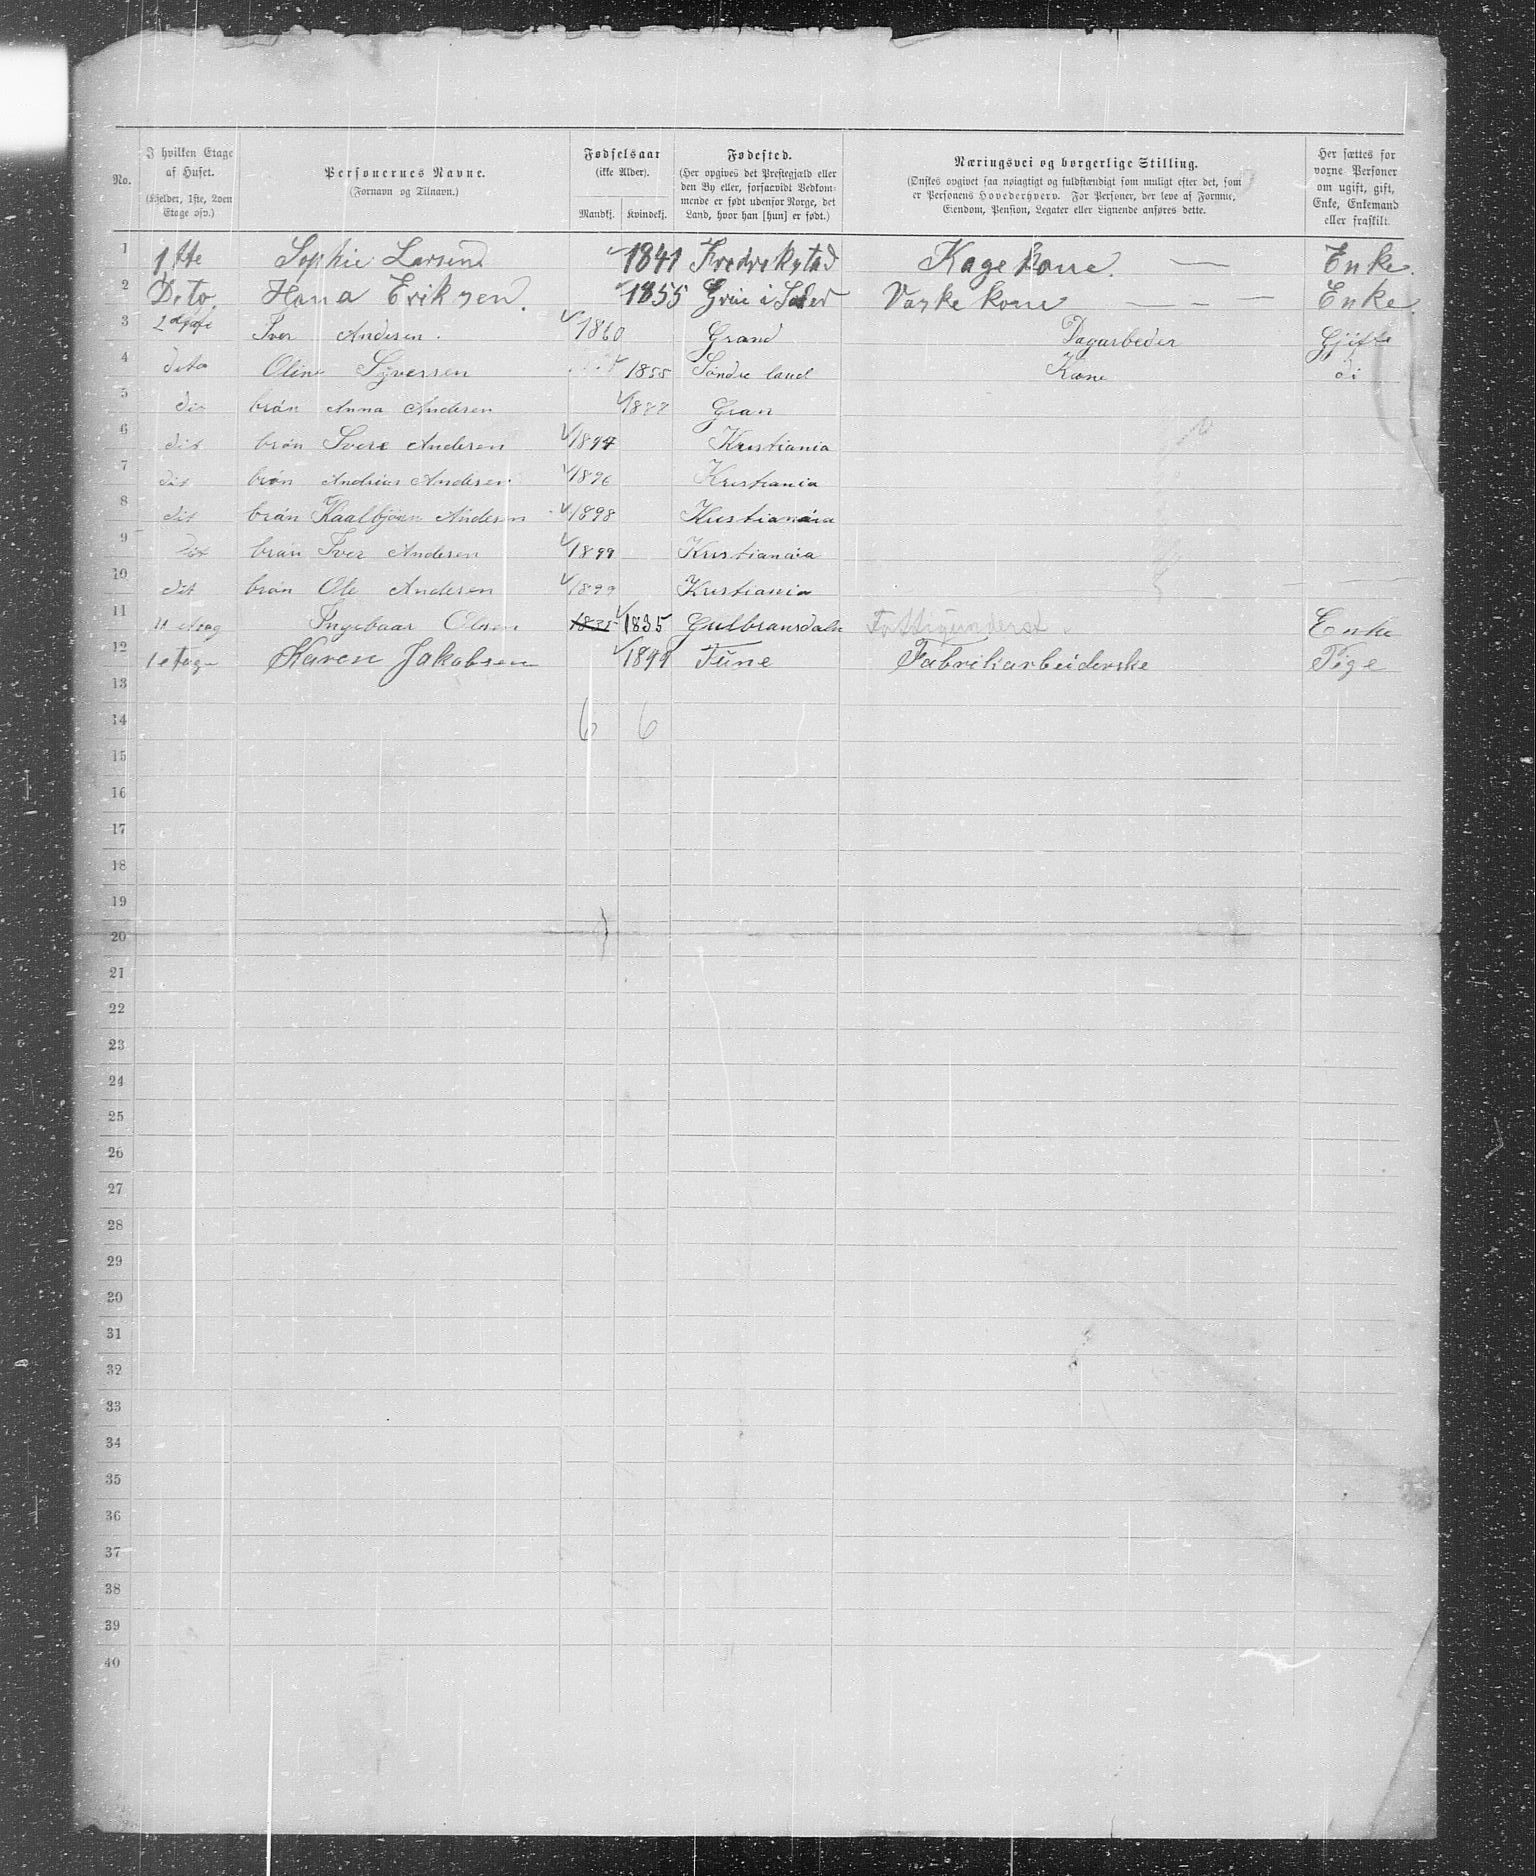 No.
I hvilken Etage af Huset.
(Kjelder, 1ste, 2den Etage osv.)
Personernes Navne.
(Fornavn og Tilnavn.)
Fødselsaar
(ikke Alder).
Mandkj. Kvindekj.
Fødested.
(Her opgives det Prestegjæld eller
den By eller, forsaavidt Vedkom-
mende er født udenfor Norge, det
Land, hvor han [hun] er født.)
Næringsvei og borgerlige Stilling.
(Ønskes opgivet saa nøiagtigt og fuldstændigt som muligt efter det, som
er Personens Hovederhverv. For Personer, der leve af Formue,
Eiendom, Pension, Legater eller Lignende anføres dette.
Her sættes for
voxne Personer
om ugift, gift,
Enke, Enkemand
eller fraskilt.
1 1ste Sophie Larsen 1841 Fredrekstad Kagekone. — Enke.
2 Dito Hana Eriksen. 1855 Kone — — — Enke.
3 Iver Andersen. 1860 Grand Dagarbeder Gjifte
4 dito Oline Syversen 1858 Søndre land Kone di
5 dit Anna Andersen Gran
6 dit Andersen 1894 Kristiania
7 dit Andreas Andersen 1896 Kristiania
8 dit Andersen 1898 Kristianaia
9 dit Iver Andersen 1899 Kristianaia
10 dit Ole Andersen 1899 Kristiania
11 Ingebaar Olsen 1835 1835 Gulbransdaln Enke
12 1 etage Karen Jakobsen Tune Fabrikarbeiderske Pige
13
14 6 6
15
16
17
18
19
20
21
22
23
24
25
26
27
28
29
30
31
32
33
34
35
36
37
38
39
40